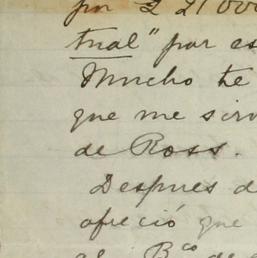 por £ 21000
trial" por es
Mucho te
que me sirv
de Ross.
Despues d
ofreció que
al Bco de